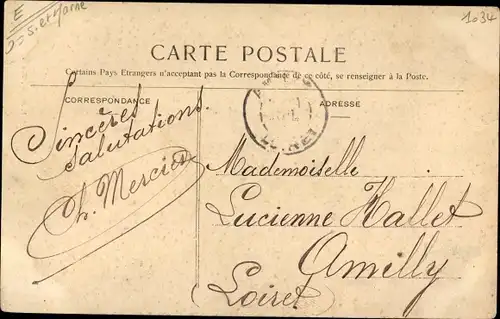 E
D = S. et Marne
1034
CARTE POSTALE
Certains Pays Etrangers n'acceptant pas la Correspondance de ce côté, se renseigner à la Poste.
CORRESPONDANCE
ADRESSE
Sincères
Salutations.
Ch. Mercier
Mademoiselle
Lucienne Hallet
Amilly
(Loiret)